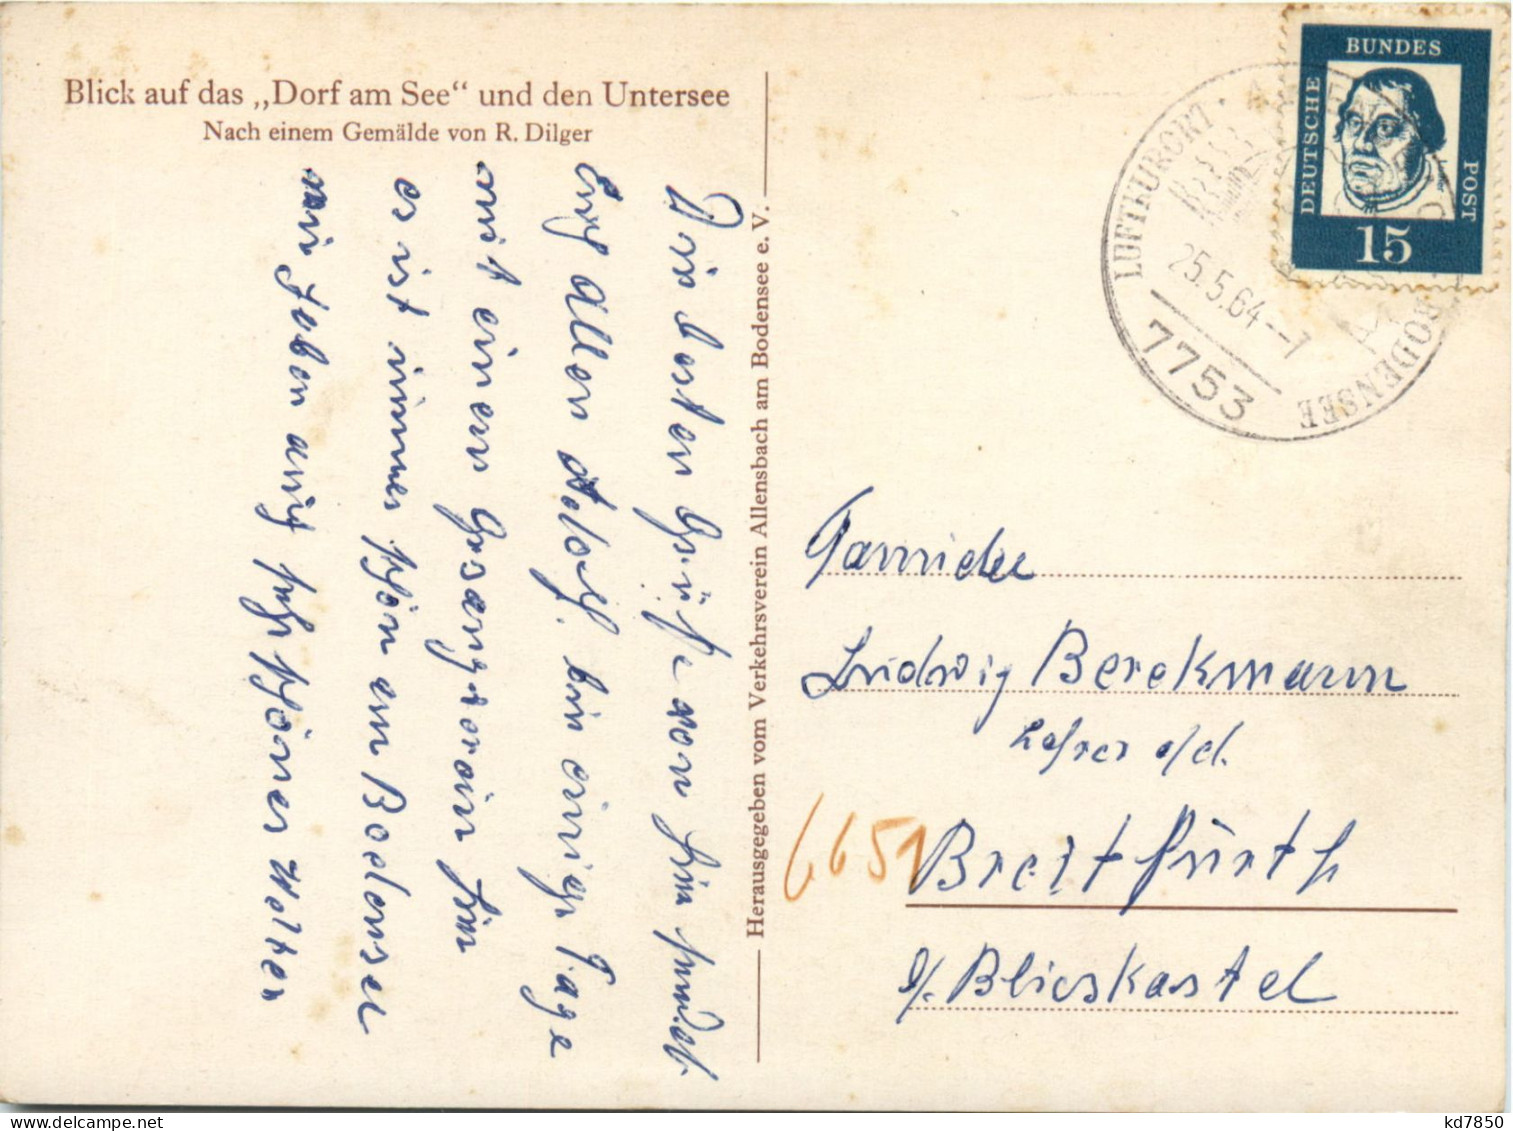 Blick auf das „Dorf am See“ und den Untersee
Nach einem Gemälde von R. Dilger
Die besten Grüße von hier sendet
Euch allen Adolf, bin einige Tage
mit einem Gesangverein hier
es ist immer schön am Bodensee
wir haben auch sehr schönes Wetter
Herausgegeben vom Verkehrsverein Allensbach am Bodensee e. V.
DEUTSCHE
BUNDES
POST
15
LUFTKURORT · ALLENSBACH
BODENSEE
25.5.64--7
7753
Familie
Ludwig Berckmann
Lehrer a/d.
6651 Breitfurth
b/. Blieskastel
kd7850